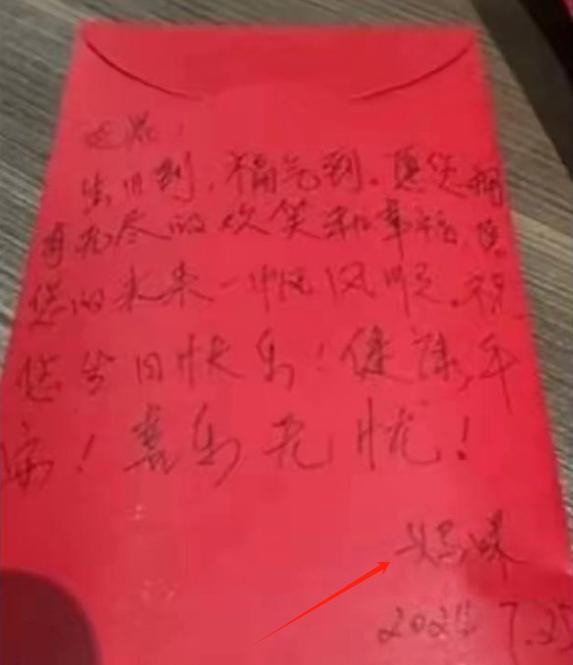 生日到，福气到。愿您拥
有无尽的欢笑和幸福，愿
您的未来一帆风顺。祝
您生日快乐！健康，平
安！喜乐无忧！
2024 7.25